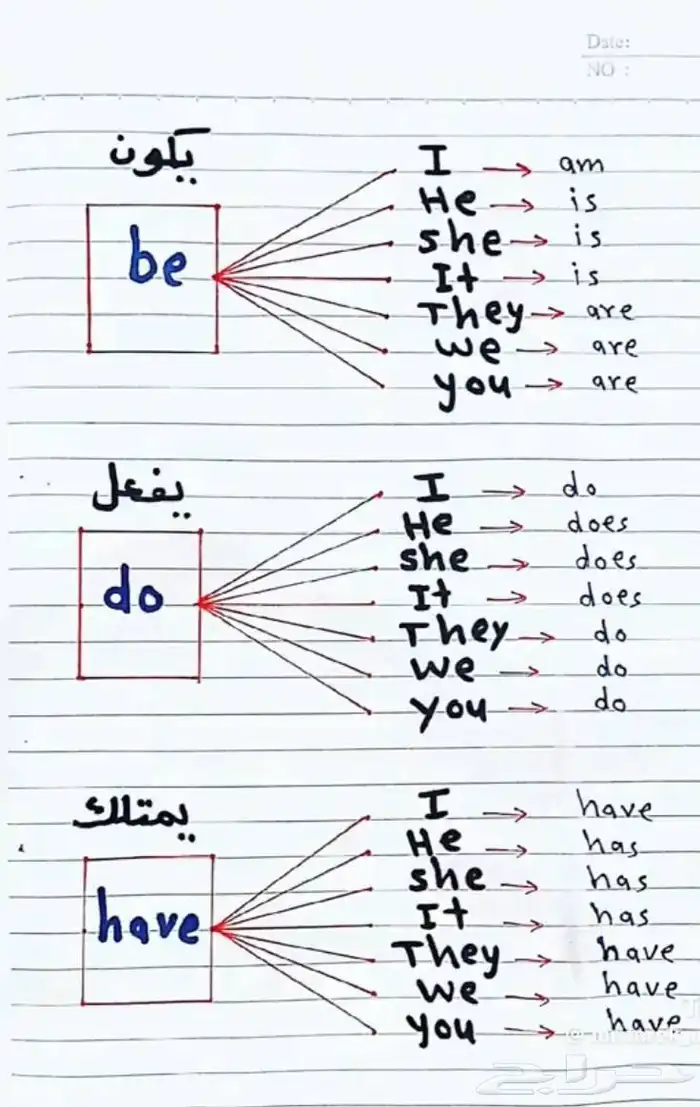 Date:
NO :
يكون
be
I → am
He → is
she → is
It → is
They → are
we → are
you → are
يفعل
do
I → do
He → does
she → does
It → does
They → do
we → do
you → do
يمتلك
have
I → have
He → has
she → has
It → has
They → have
we → have
you → have
حراج